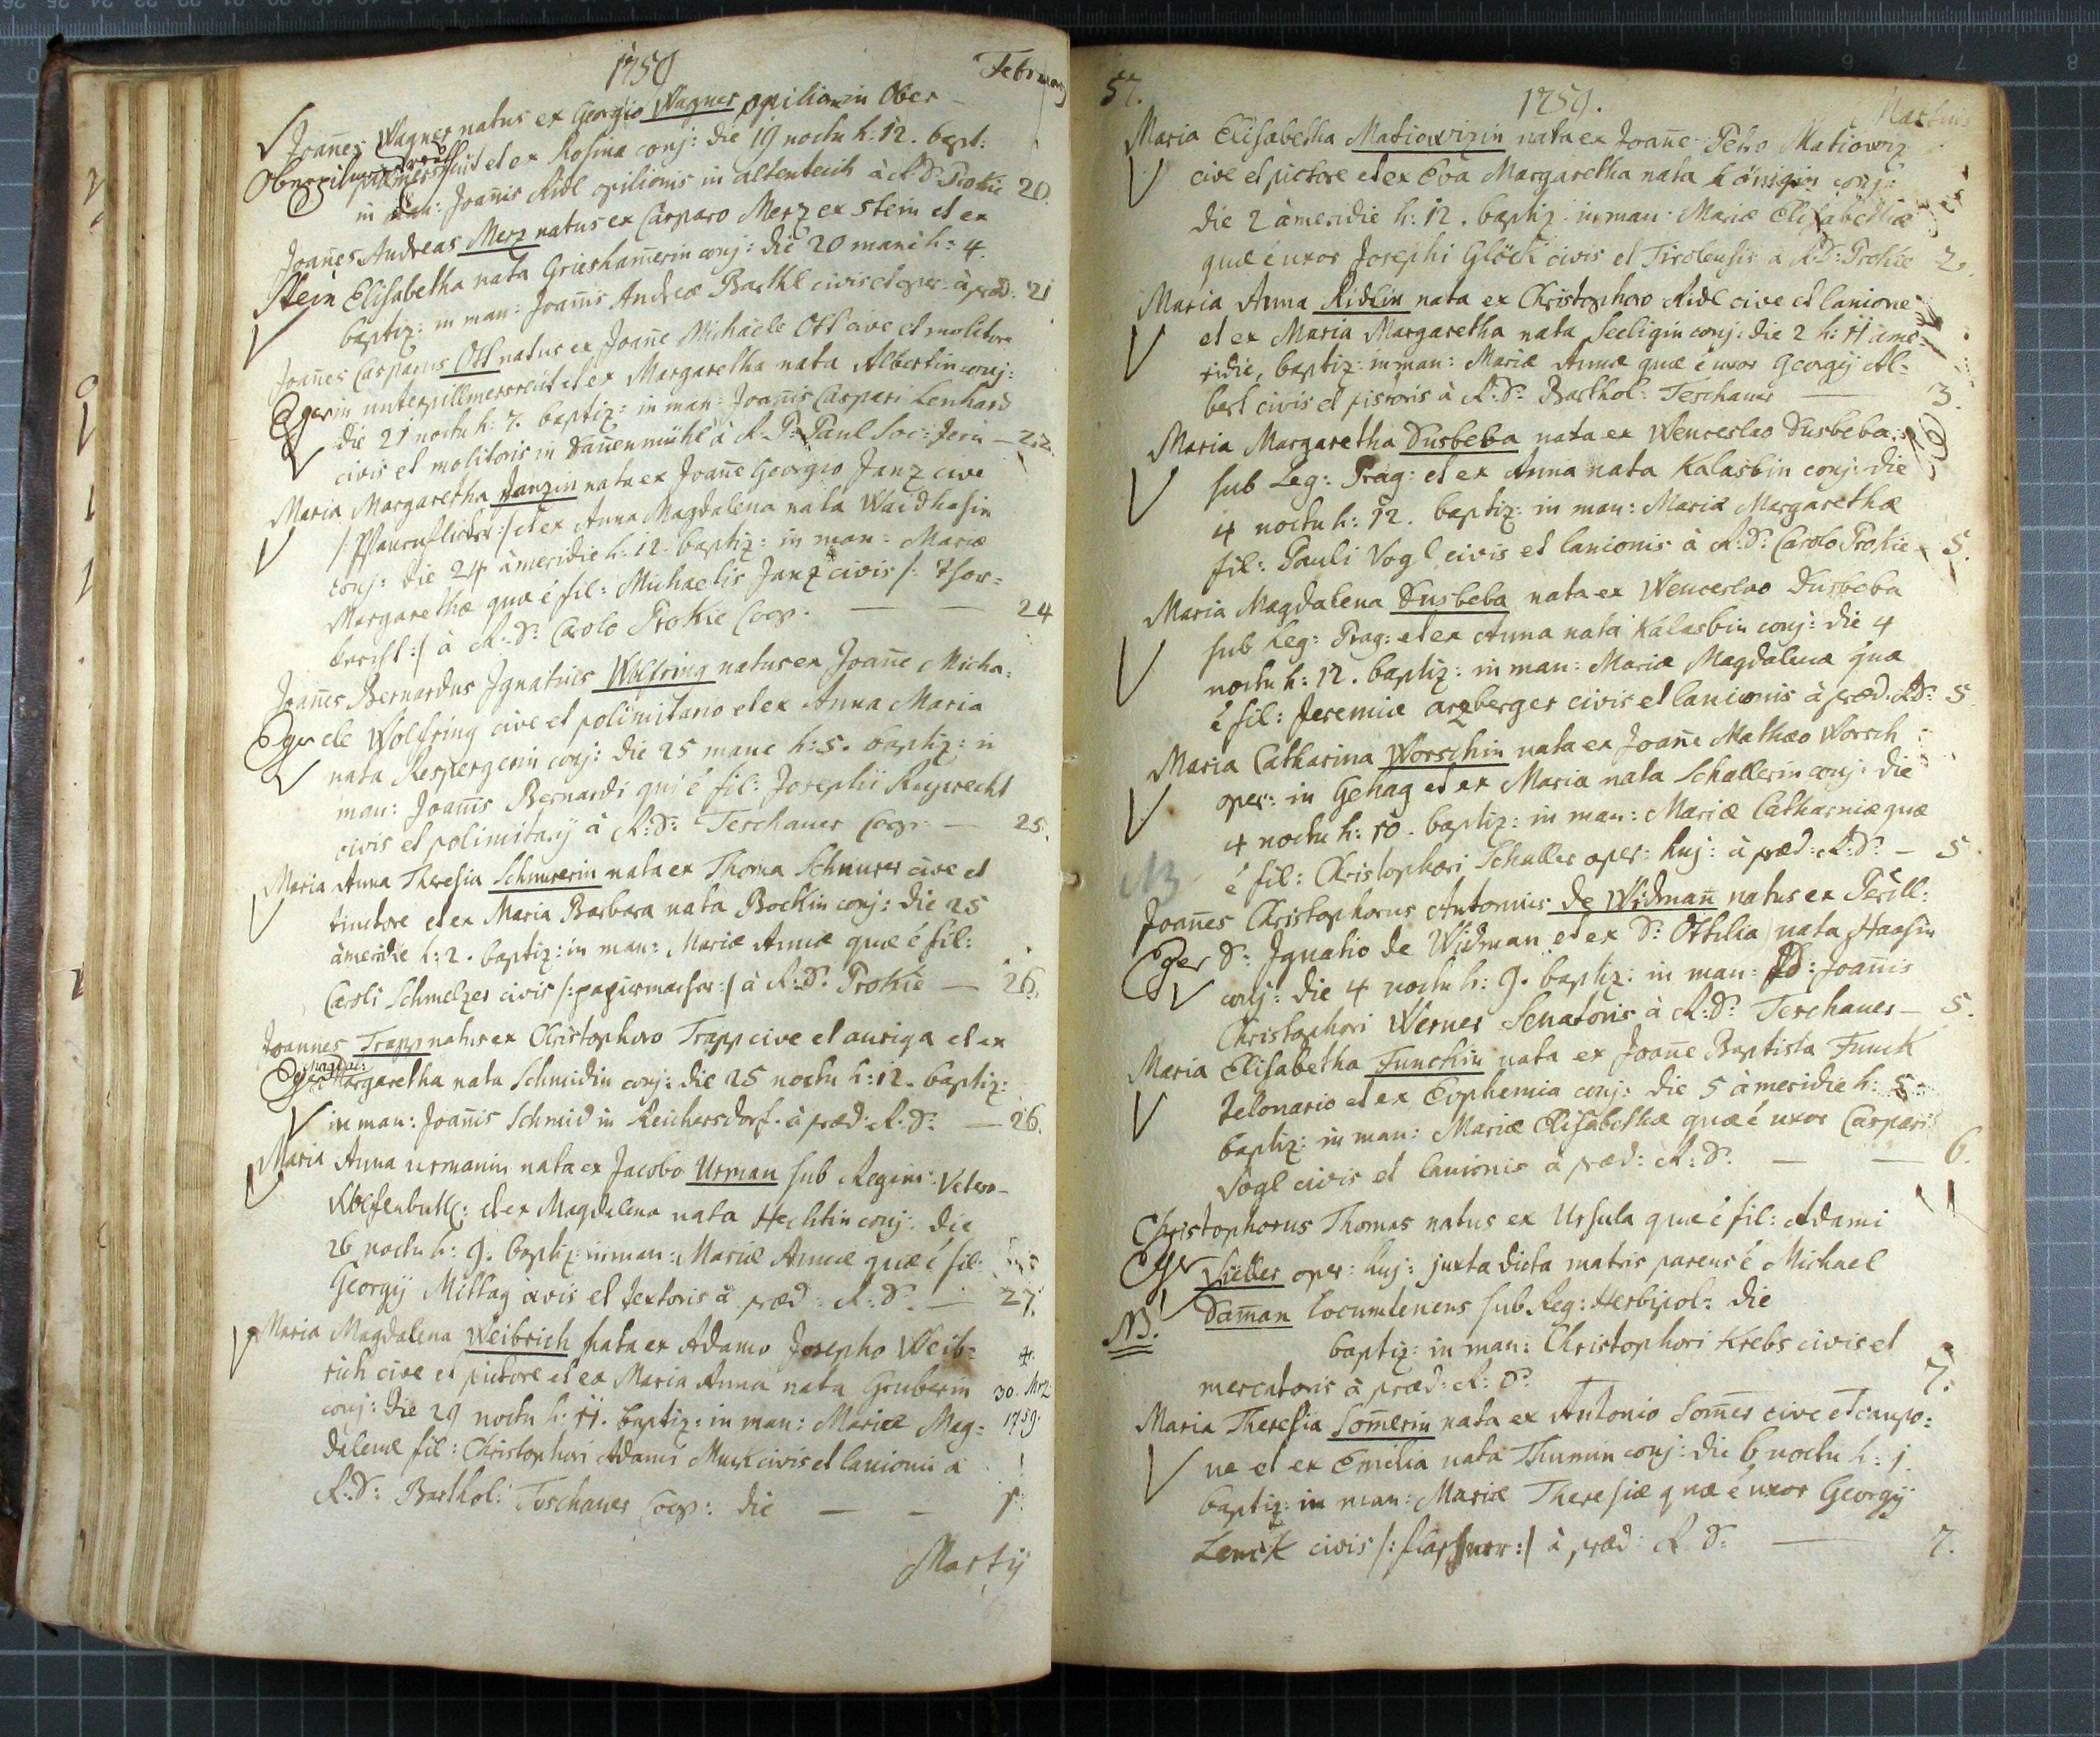 1759 Februarij
Joañes Wagner natus ex Georgio Wagner opilione in Ober-
Oberpilmersreuth pilmersreut et ex Rosina conj: die 19 noctu h: 12. bapt:
in man: Joañis Ridl opilionis in altenteich à R: D: Prokie 20.
Joañes Andreas Merz natus ex Casparo Merz ex Stein et ex
Stein Elisabetha nata Griesham̃erin conj: die 20 mane h: 4.
baptiz: in man: Joañis Andreæ Barthl civis et oper: à præd: 21
Joañes Casparus Ott natus ex Joañe Michaele Ott cive et molitore
Eger in unterpillmersreut et ex Margaretha nata Albertin conj:
die 21 noctu h: 7. baptiz: in man: Joañis Caspari Lenhard
civis et molitoris in Dañenmühl à R: P: Paul Soc: Jesu — 22.
Maria Margaretha Janzin nata ex Joañe Georgio Janz cive
/: Pfanenflicker :/ et ex Anna Magdalena nata Waidhasin
conj: die 24 à meridie h: 12. baptiz: in man: Mariæ
Margarethæ quæ ê fil: Michaelis Janz civis /: Thor=
:/ à R: D: Carolo Prokie Coop. — — 24
Joañes Bernardus Ignatius Wolfring natus ex Joañe Micha=
Eger ele Wolfring cive et polimitario et ex Anna Maria
nata Respergerin conj: die 25 mane h: 5. baptiz: in
man: Joañis Bernardi qui ê fil: Josephi Ruprecht
civis et polimitarij à R: D: Teschauer Coop: — 25.
Maria Anna Theresia Schnurerin nata ex Thoma Schnurer cive et
tinctore et ex Maria Barbara nata Böckin conj: die 25
à meridie h: 2. baptiz: in man: Mariæ Annæ quæ ê fil:
Caroli Schmelzer civis /: papiermacher :/ à R: D: Prokie — 26.
Joannes Trapp natus ex Christophoro Trapp cive et auriga et ex
Magdal:
Eger Margaretha nata Schmidin conj: die 25 noctu h: 12. baptiz:
in man: Joañis Schmid in Reichersdorf. à præd: R: D: — 26.
Maria Anna urmanin nata ex Jacobo Urman sub Regim: Veter-
Wolfenbuttl: et ex Magdalena nata Hechtin conj: die
26 noctu h: 9. baptiz: in man: Mariæ Annæ quæ ê fil:
Georgij Mittag civis et textoris à præd: R: D: — 27.
Maria Magdalena Weibrich nata ex Adamo Josepho Weib=
rich cive et pictore et ex Maria Anna nata Gruberin
conj: die 29 noctu h: 11. baptiz: in man: Mariæ Mag=
dalenæ fil: Christophori Adami Muck civis et lanionis à
R: D: Barthol: Teschauer Coop: die — — 1.
30. Mrz 1759.
Martij
57. 1759. Martius
Maria Elisabetha Matiowizin nata ex Joañe Petro Matiowiz
cive et pictore et ex Eva Margaretha nata Königin conj:
die 2 à meridie h: 12. baptiz: in man: Mariæ Elisabethæ
quæ ê uxor Josephi Glöck civis et Tirolensis à R: D: Prokie 2.
Maria Anna Ridlin nata ex Christophoro Ridl cive et lanione
et ex Maria Margaretha nata Seeligin conj: die 2 h: 11 à me=
ridie, baptiz: in man: Mariæ Annæ quæ ê uxor Georgij Al=
bert civis et pistoris à R: D: Barthol: Teschauer — 3.
Maria Margaretha Dusbeba nata ex Wenceslao Dusbeba
sub Leg: Prag: et ex Anna nata Kalasbin conj: die
4 noctu h: 12. baptiz: in man: Mariæ Margarethæ
fil: Pauli Vogl civis et lanionis à R: D: Carolo Prokie 5.
Maria Magdalena Dusbeba nata ex Wenceslao Dusbeba
sub Leg: Prag: et ex Anna nata Kalasbin conj: die 4
noctu h: 12. baptiz: in man: Mariæ Magdalenæ quæ
ê fil: Jeremiæ arzberger civis et lanionis à præd: R: D: 5
Maria Catharina Worschin nata ex Joañe Mathæo Worsch
oper: in Gehag et ex Maria nata Schallerin conj: die
4 noctu h: 10. baptiz: in man: Mariæ Catharinæ quæ
ê fil: Christophori Schaller oper: huj: à præd: R: D: — 5.
NB
Joañes Christophorus Antonius de Widmañ natus ex Perill:
Eger D: Ignatio de Widman et ex D: Ottilia nata Haasin
conj: die 4 noctu h: 9. baptiz: in man: D: Joañis
Christophori Werner Senatoris à R: D: Teschauer — 5.
Maria Elisabetha Funckin nata ex Joañe Baptista Funck
Telonario et ex Euphemia conj: die 5 à meridie h: 5.
baptiz: in man: Mariæ Elisabethæ quæ ê uxor Caspari
Vogl civis et lanionis à præd: R: D: — — 6.
Christophorus Thomas natus ex Ursula quæ ê fil: Adami
Eger oper: huj: juxta dicta matris parens ê Michael
NB. Dam̃an locumtenens sub Reg: Herbipol: die
baptiz: in man: Christophori Krebs civis et
mercatoris à præd: R: D: 7.
Maria Theresia Som̃erin nata ex Antonio Som̃er cive et caupo=
ne et ex Emilia nata Thumin conj: die 6 noctu h: 1.
baptiz: in man: Mariæ Theresiæ quæ ê uxor Georgij
Lenck civis /: flaschner :/ à præd: R: D: — 7.